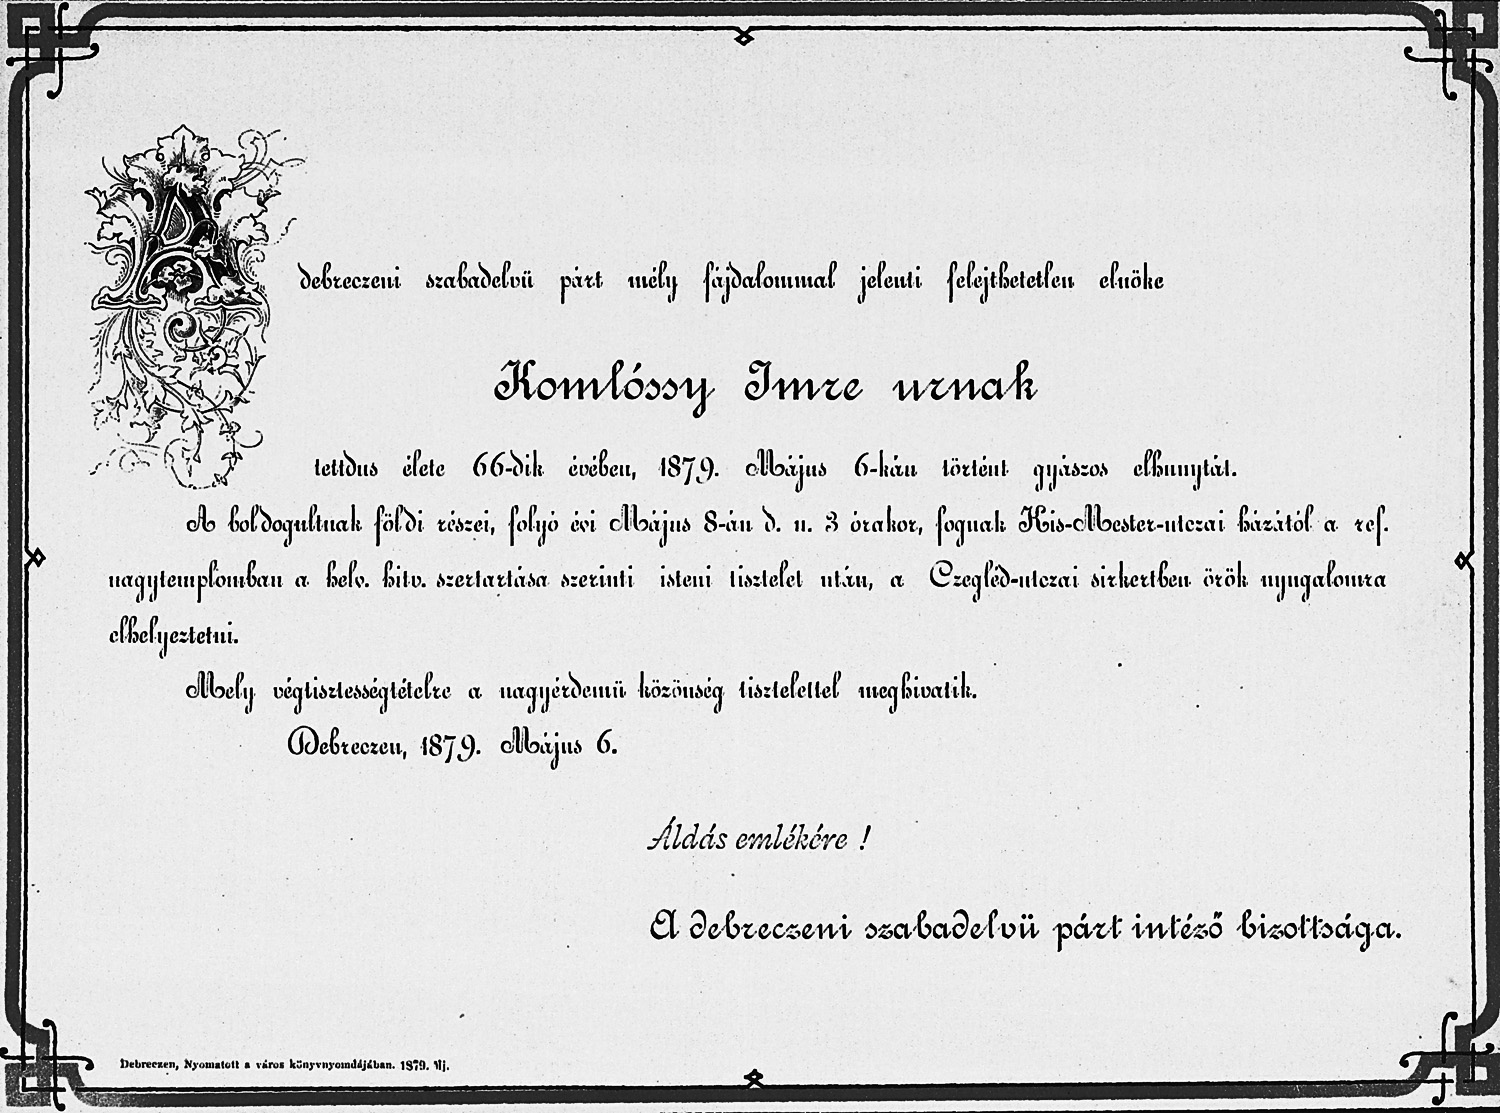 A debreczeni szabadelvü párt mély fájdalommal jelenti felejthetetlen elnöke
Komlóssy Imre urnak
tettdus élete 66-dik évében, 1879. Május 6-kán történt gyászos elhunytát.
A boldogultnak földi részei, folyó évi Május 8-án d. u. 3 órakor, fognak Kis-Mester-utczai házától a ref.
nagytemplomban a helv. hitv. szertartása szerinti isteni tisztelet után, a Czegléd-utczai sirkertben örök nyugalomra
elhelyeztetni.
Mely végtisztességtételre a nagyérdemü közönség tisztelettel meghivatik.
Debreczen, 1879. Május 6.
Áldás emlékére !
A debreczeni szabadelvü párt intéző bizottsága.
Debreczen, Nyomatott a város könyvnyomdájában. 1879.